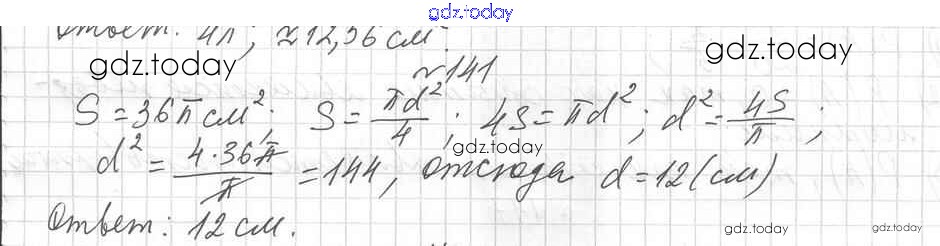 gdz.today
Ответ: 4π; ≈12,56 см².
gdz.today
gdz.today
№141
S = 36π см²; S = πd²/4; 4S = πd²; d² = 4S/π;
gdz.today
d² = 4·36π/π = 144, отсюда d = 12 (см)
Ответ: 12 см.
gdz.today
gdz.today